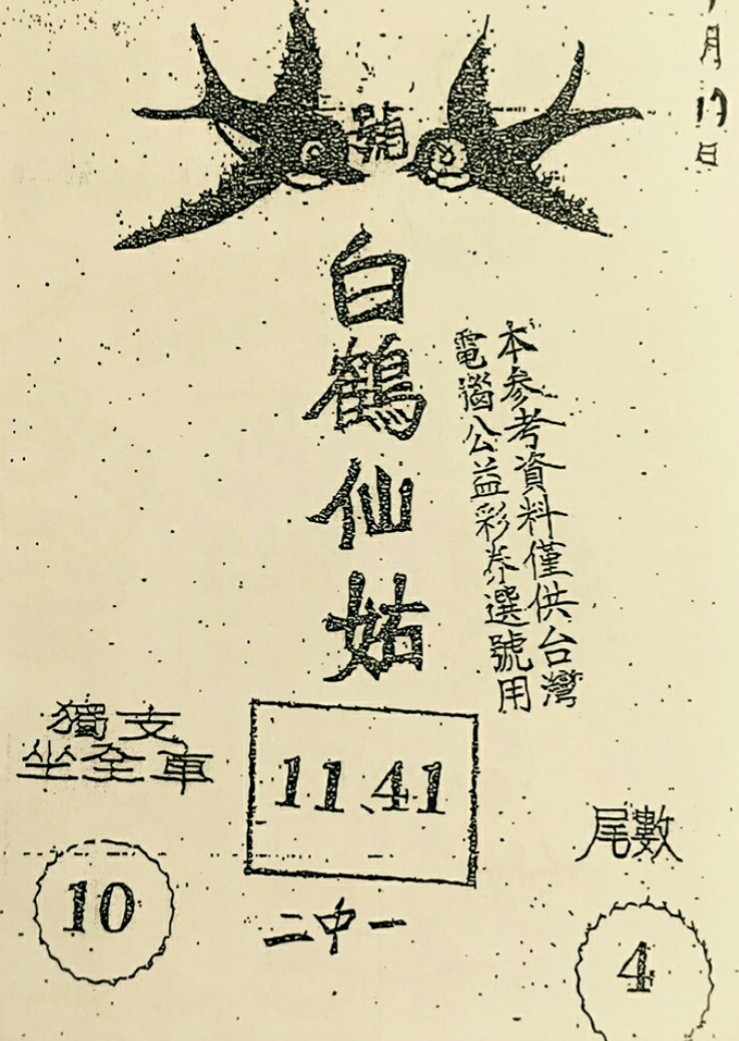 月19日
號
白鶴仙姑
本参考資料僅供台灣
電腦公益彩券選號用
獨支
坐全車
10
11、41
二中一
尾數
4